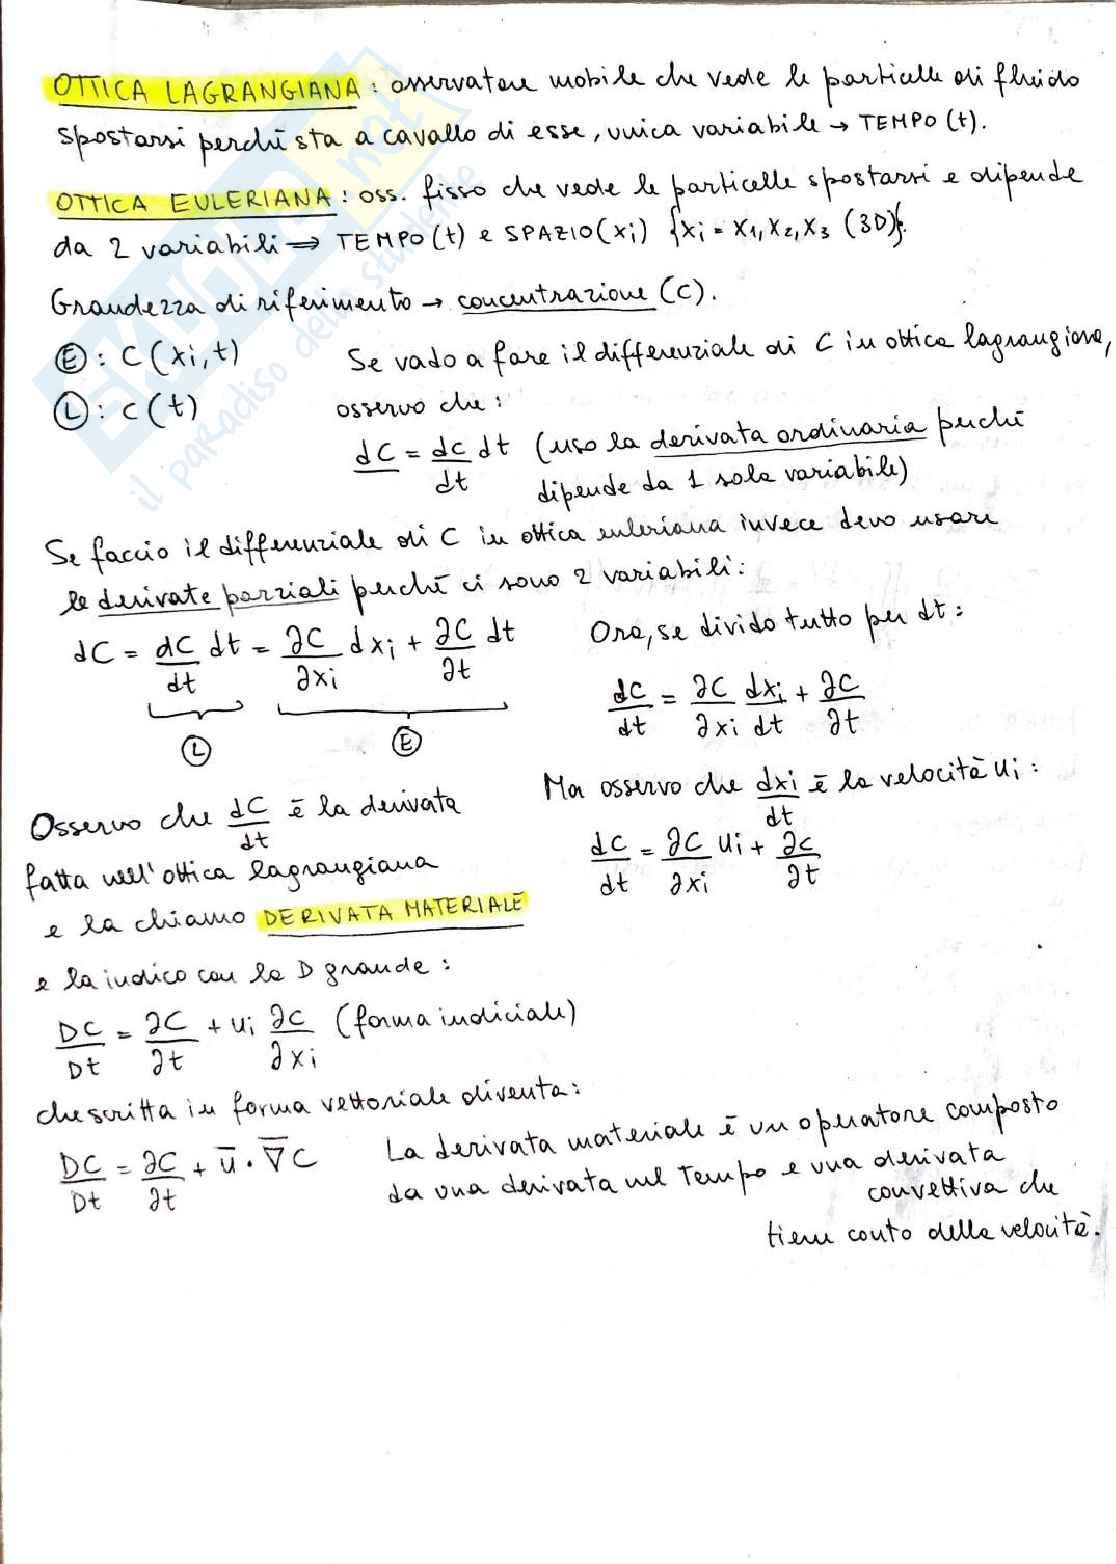 OTTICA LAGRANGIANA : osservatore mobile che vede le particelle di fluido
spostarsi perchè sta a cavallo di esse, unica variabile → TEMPO (t).
OTTICA EULERIANA : oss. fisso che vede le particelle spostarsi e dipende
da 2 variabili ⇒ TEMPO (t) e SPAZIO (xi) {xi = x1, x2, x3 (3D)}.
Grandezza di riferimento → concentrazione (C).
Ⓔ : C (xi, t)
Ⓛ : c (t)
Se vado a fare il differenziale di C in ottica lagrangiana,
osservo che :
dC = dc/dt dt (uso la derivata ordinaria perchè
dipende da 1 sola variabile)
Se faccio il differenziale di C in ottica euleriana invece devo usare
le derivate parziali perchè ci sono 2 variabili :
dC = dC/dt dt = ∂C/∂xi dxi + ∂C/∂t dt
Ⓛ Ⓔ
Ora, se divido tutto per dt :
dC/dt = ∂C/∂xi dxi/dt + ∂C/∂t
Ma osservo che dxi/dt è la velocità ui :
dC/dt = ∂C/∂xi ui + ∂c/∂t
Osservo che dC/dt è la derivata
fatta nell'ottica lagrangiana
e la chiamo DERIVATA MATERIALE
e la indico con la D grande :
DC/Dt = ∂C/∂t + ui ∂c/∂xi (forma indiciale)
che scritta in forma vettoriale diventa :
DC/Dt = ∂C/∂t + ū · ∇̄C
La derivata materiale è un operatore composto
da una derivata nel tempo e una derivata
convettiva che
tiene conto della velocità.
SKUOLA.net
il paradiso dello studente